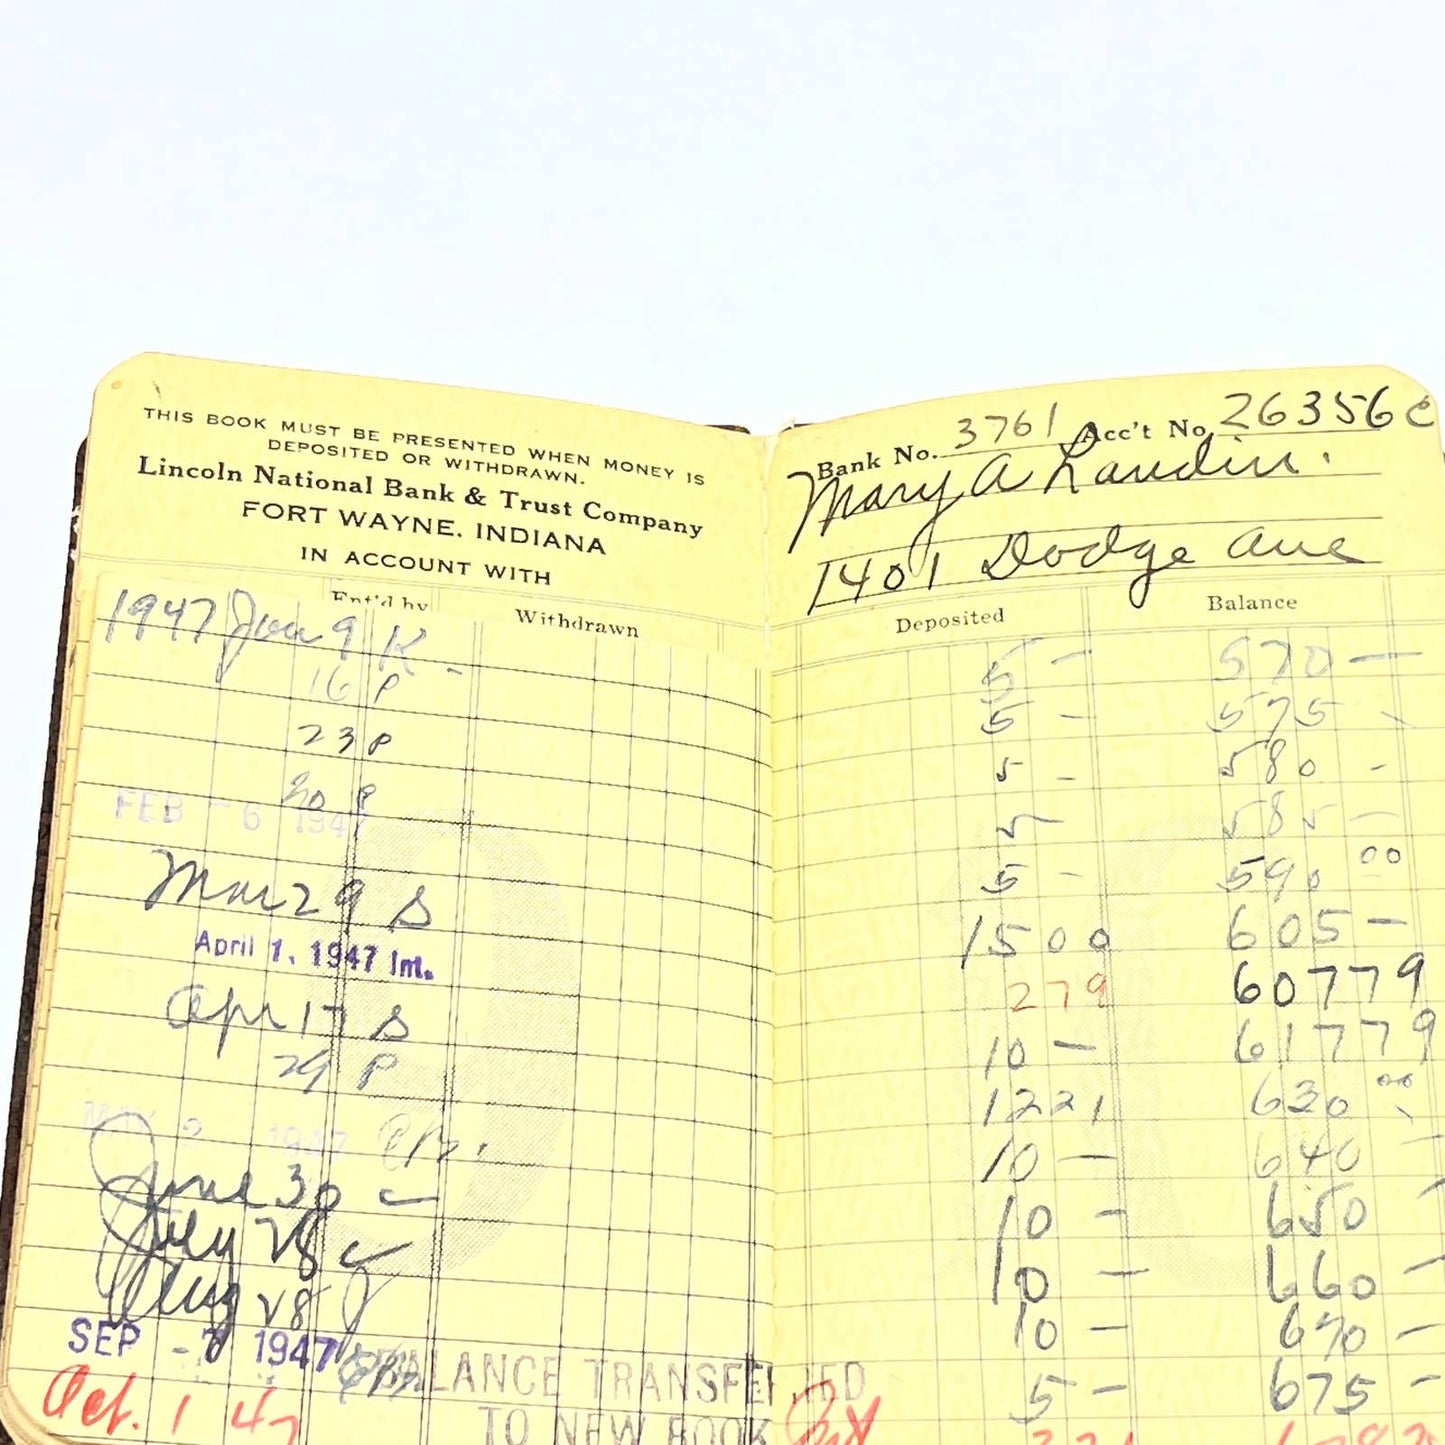 THIS BOOK MUST BE PRESENTED WHEN MONEY IS
DEPOSITED OR WITHDRAWN.
Lincoln National Bank & Trust Company
FORT WAYNE, INDIANA
IN ACCOUNT WITH
Bank No. 3761 Acc't No. 26356c
Mary A Landin.
1401 Dodge Ave
Ent'd by Withdrawn Deposited Balance
1947 Jan 9 K - 5 — 570 —
16 P 5 - 575 -
23 P 5 - 580 -
30 P 5 585 —
FEB - 6 1947 5 - 590 00
Mar 29 S 15 00 605 —
April 1, 1947 Int. 2 79 607 79
Apr 17 S 10 — 617 79
29 P 12 21 630 00
1947 10 — 640 —
June 30 10 — 650 -
July 28 10 — 660 —
Aug 28 10 — 670 —
SEP - 1947 5 — 675 -
BALANCE TRANSFERRED
TO NEW BOOK
Oct. 1 47